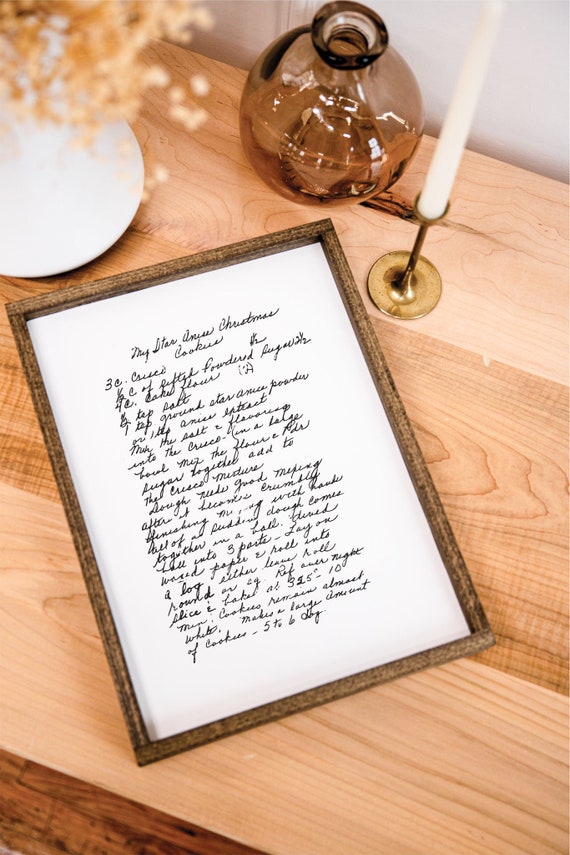 My Star Anise Christmas
Cookies
3 C. Crisco 1/2
C of Sifted Powdered Sugar
4 C. Cake Flour
tsp salt
tsp ground star anise powder
or 1 tsp anise extract
Mix the salt & flavoring
into the Crisco in a large
bowl Mix the flour &
sugar together add to
the Crisco mixture
Dough needs good mixing
after it becomes crumbly
finishing mixing with hands
all of a sudden dough comes
together in a ball. Divide
ball into 3 parts - Lay on
waxed paper & roll into
a log either leave roll
round or sq. Ref over night
slice & bake at 325° - 10
min. Cookies remain almost
white. Makes a large amount
of Cookies - 5 to 6 doz.